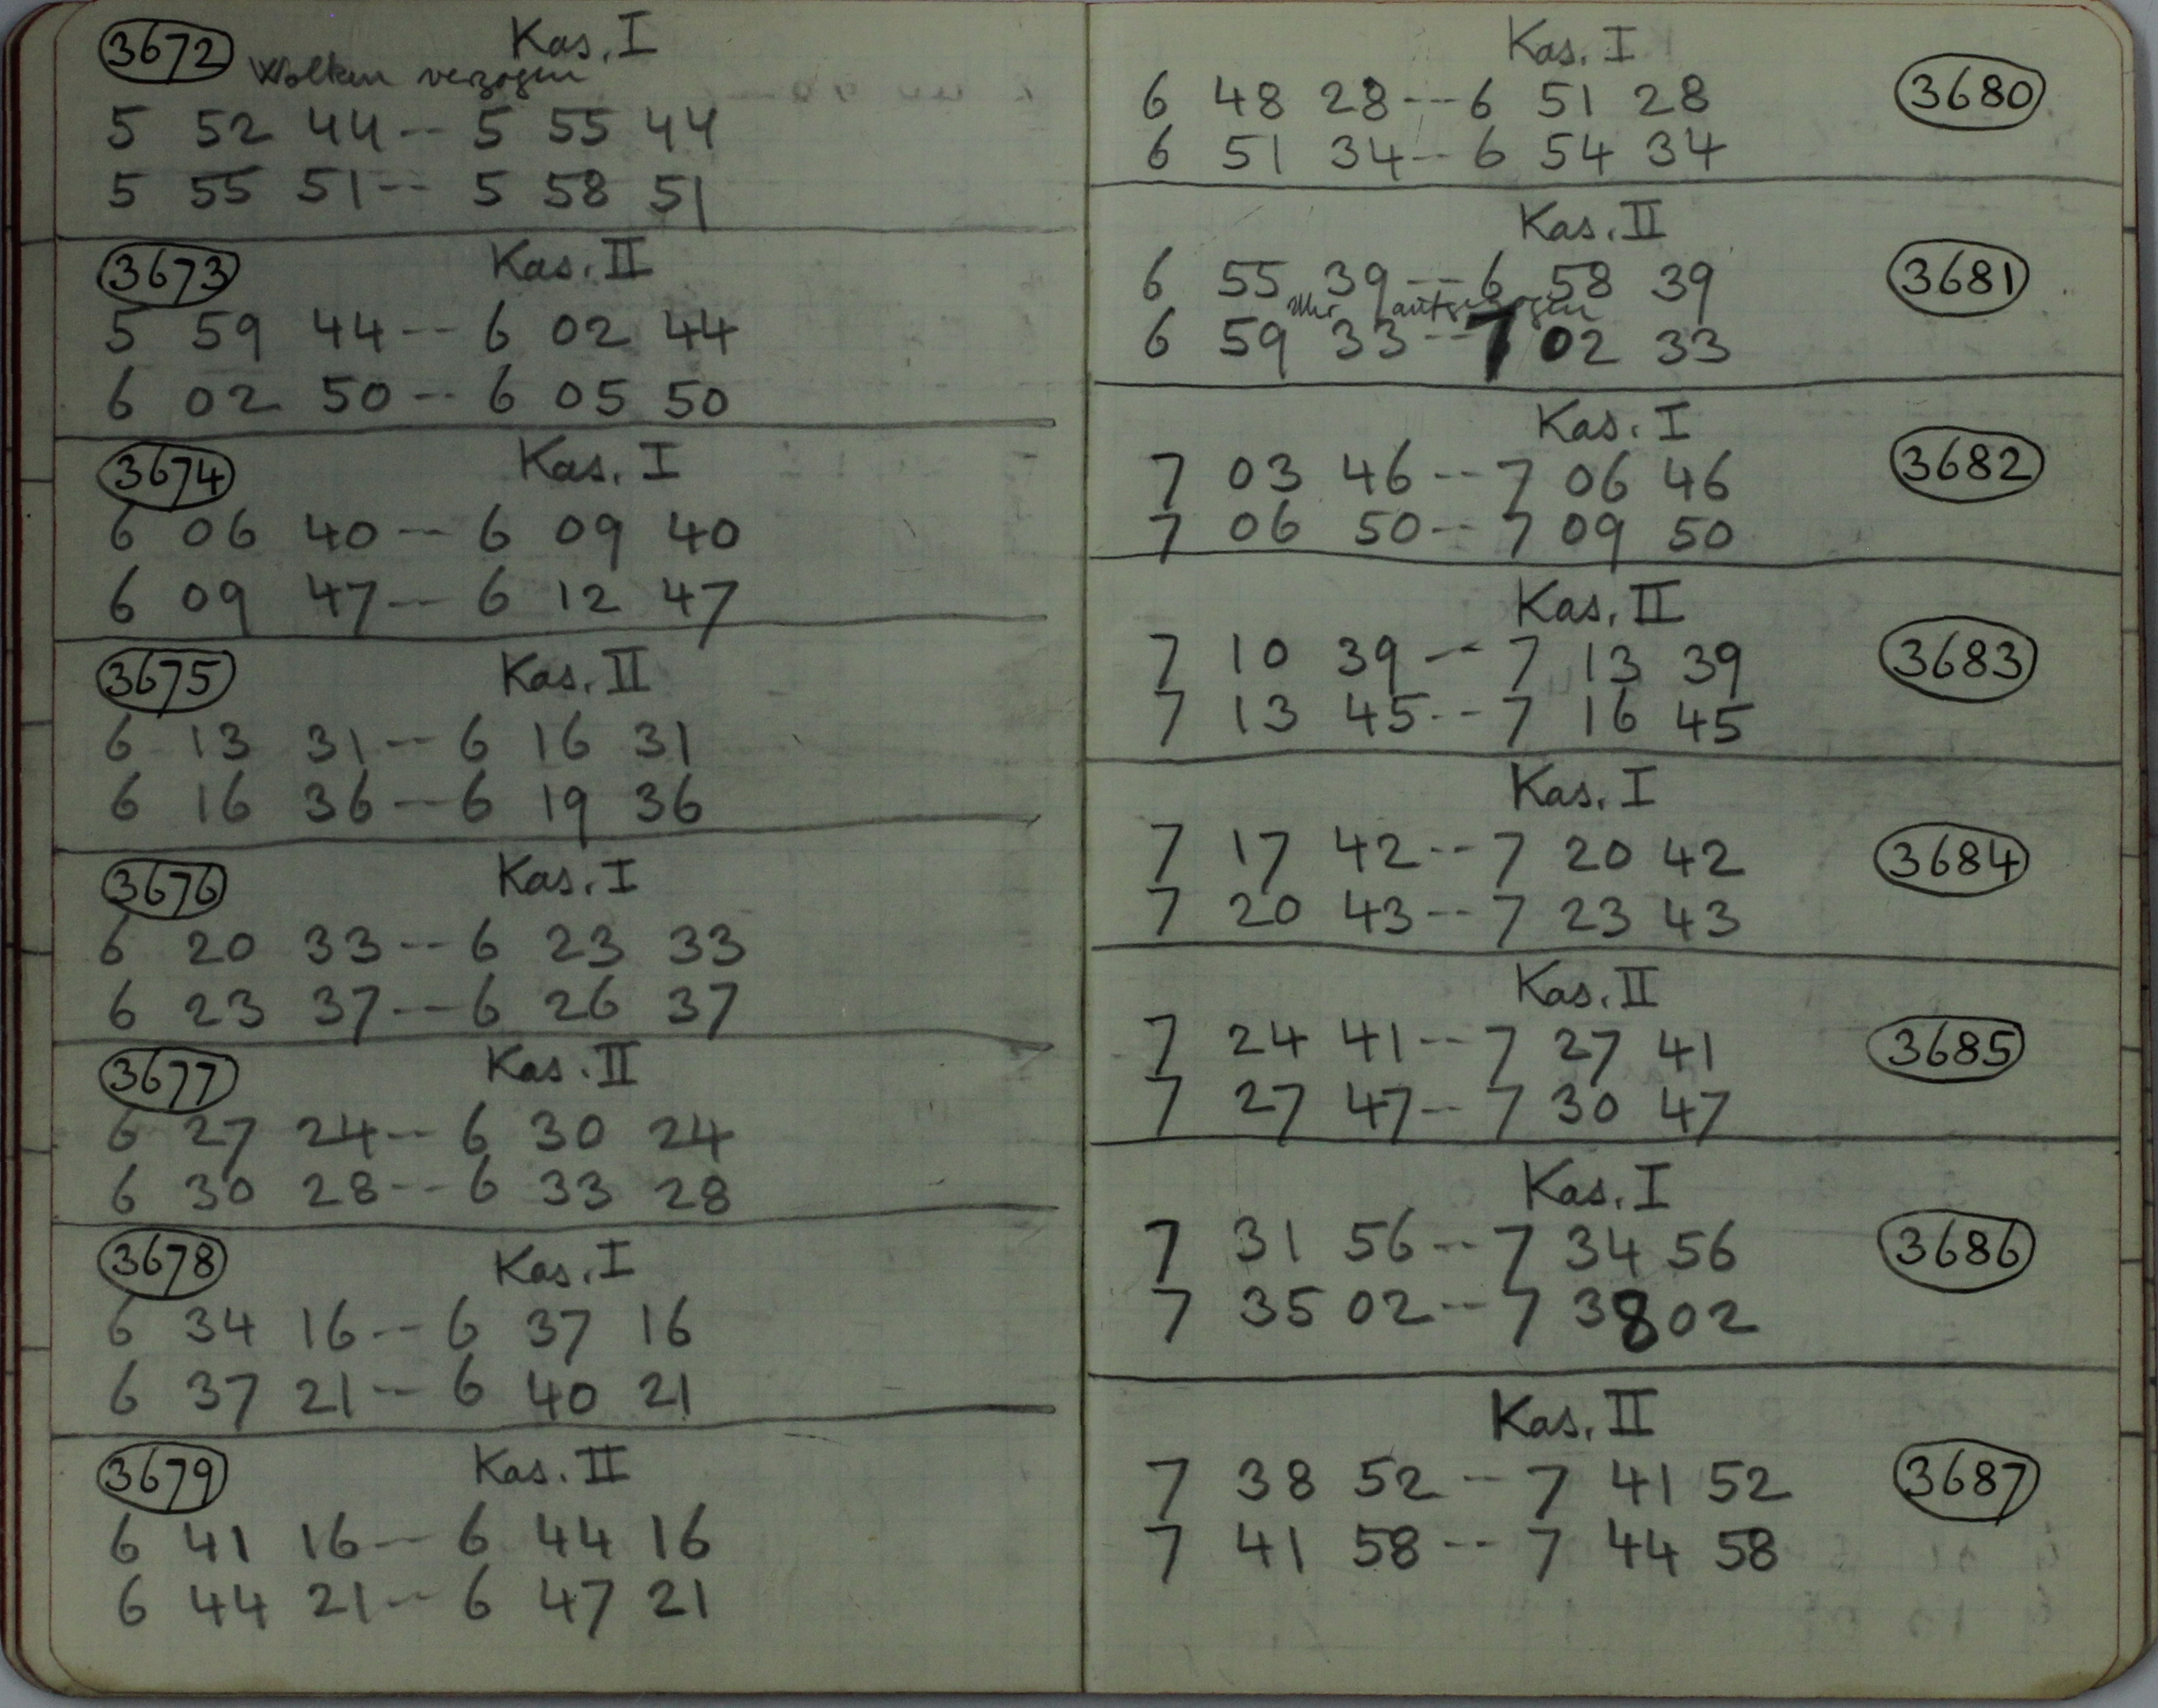 3672 Kas. I
Wolken verzogen
5 52 44 -- 5 55 44
5 55 51 -- 5 58 51
3673 Kas. II
5 59 44 -- 6 02 44
6 02 50 -- 6 05 50
3674 Kas. I
6 06 40 -- 6 09 40
6 09 47 -- 6 12 47
3675 Kas. II
6 13 31 -- 6 16 31
6 16 36 -- 6 19 36
3676 Kas. I
6 20 33 -- 6 23 33
6 23 37 -- 6 26 37
3677 Kas. II
6 27 24 -- 6 30 24
6 30 28 -- 6 33 28
3678 Kas. I
6 34 16 -- 6 37 16
6 37 21 -- 6 40 21
3679 Kas. II
6 41 16 -- 6 44 16
6 44 21 -- 6 47 21
Kas. I
6 48 28 -- 6 51 28 3680
6 51 34 -- 6 54 34
Kas. II
6 55 39 -- 6 58 39 3681
Uhr aufgezogen
6 59 33 -- 7 02 33
Kas. I
7 03 46 -- 7 06 46 3682
7 06 50 -- 7 09 50
Kas. II
7 10 39 -- 7 13 39 3683
7 13 45 -- 7 16 45
Kas. I
7 17 42 -- 7 20 42 3684
7 20 43 -- 7 23 43
Kas. II
7 24 41 -- 7 27 41 3685
7 27 47 -- 7 30 47
Kas. I
7 31 56 -- 7 34 56 3686
7 35 02 -- 7 38 02
Kas. II
7 38 52 -- 7 41 52 3687
7 41 58 -- 7 44 58